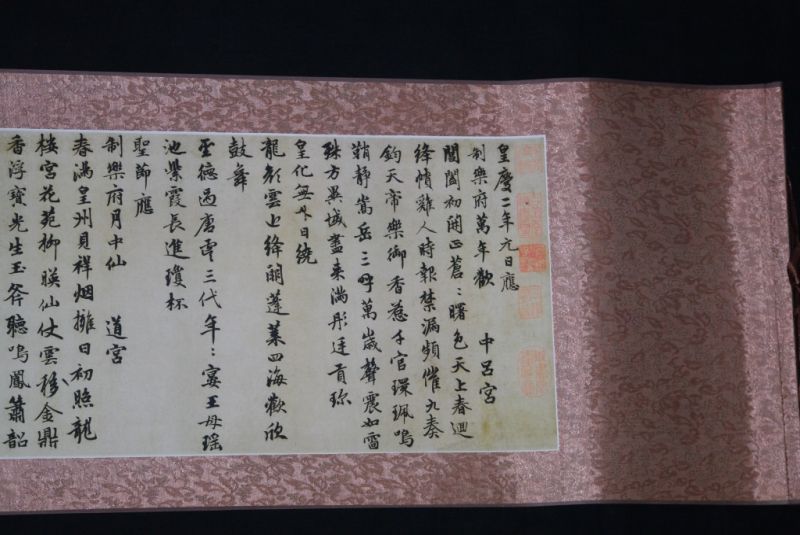 皇慶二年元日應
制樂府萬年歡 中呂宮
閶闔初開正蒼〻曙色天上春迴
絳幘雞人時報禁漏頻催九奏
鈞天帝樂御香惹千官環珮鳴
鞘靜嵩岳三呼萬歲聲震如雷
殊方異域盡來滿彤廷貢珎
皇化無外日繞
龍顏雲上絳闕蓬萊四海歡欣
鼓舞
至德過唐虞三代年〻宴王母瑤
池紫霞長進瓊杯
聖節應
制樂府月中仙 道宮
春滿皇州見祥烟擁日初照龍
樓宮花苑柳暎仙仗雲移金鼎
香浮寶光生玉斧聽鳴鳳簫韶